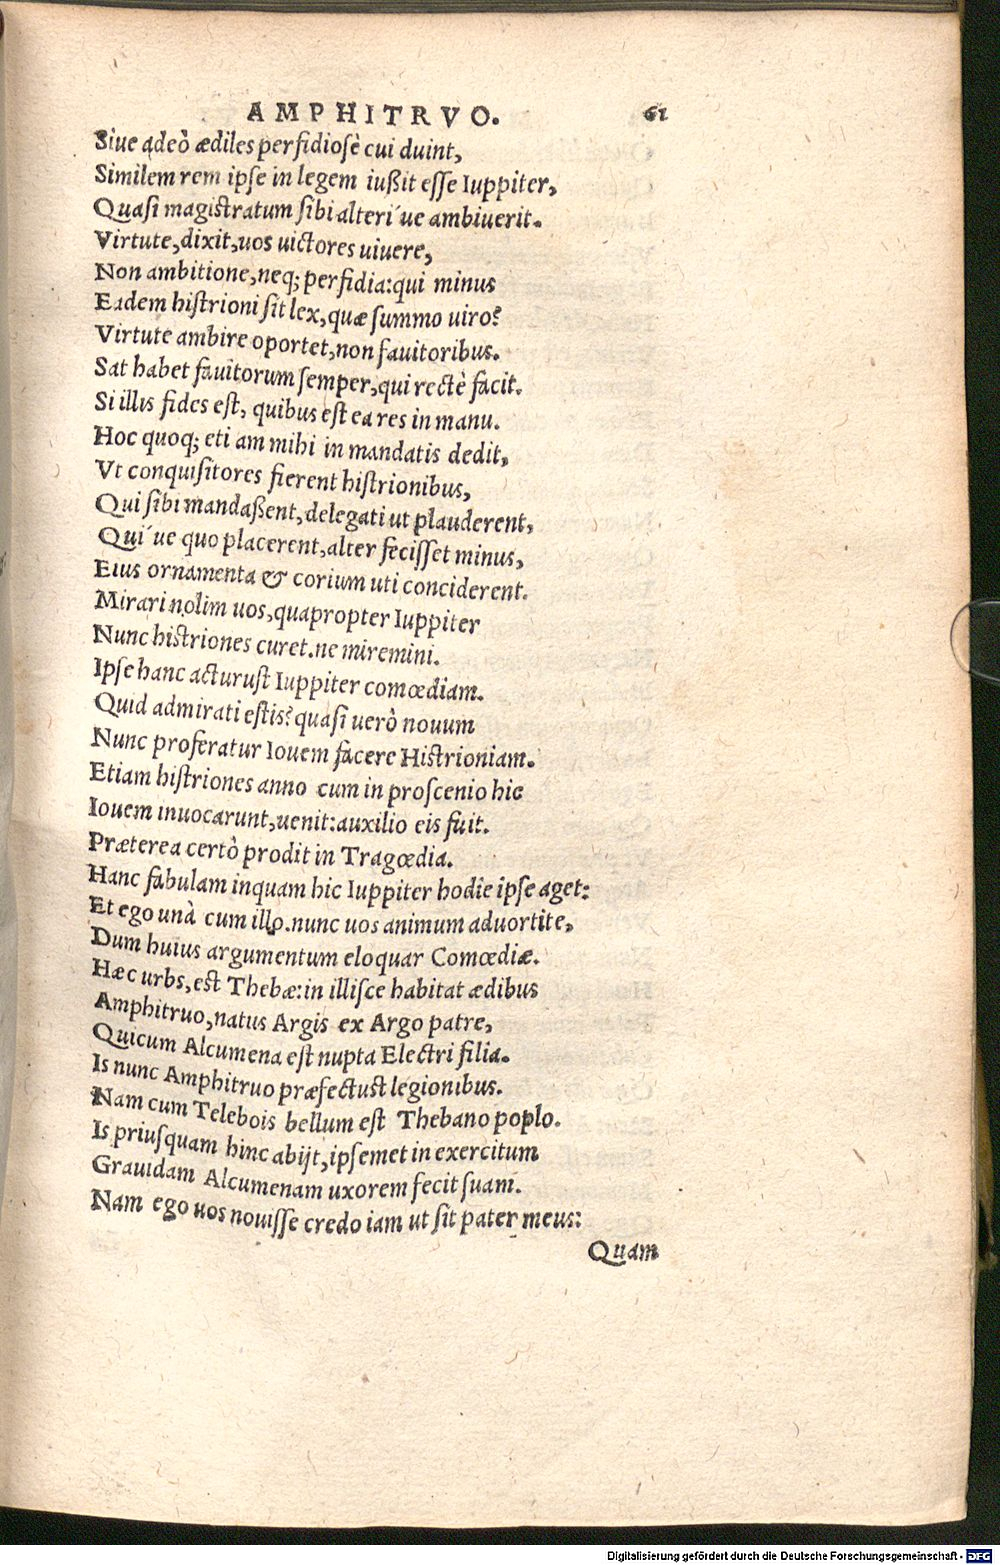 AMPHITRVO. 61
Siue adeò ædiles perfidiosè cui duint,
Similem rem ipse in legem iußit esse Iuppiter,
Quasi magistratum sibi alteri´ue ambiuerit.
Virtute, dixit, uos uictores uiuere,
Non ambitione, neq; perfidia: qui minus
Eadem histrioni sit lex, quæ summo uiro?
Virtute ambire oportet, non fauitoribus.
Sat habet fauitorum semper, qui rectè facit.
Si illis fides est, quibus est ea res in manu.
Hoc quoq; eti am mihi in mandatis dedit,
Vt conquisitores fierent histrionibus,
Qui sibi mandaßent, delegati ut plauderent,
Qui´ue quo placerent, alter fecisset minus,
Eius ornamenta & corium uti conciderent.
Mirari nolim uos, quapropter Iuppiter
Nunc histriones curet. ne miremini.
Ipse hanc acturust Iuppiter comœdiam.
Quid admirati estis? quasi uerò nouum
Nunc proferatur Iouem facere Histrioniam.
Etiam histriones anno cum in proscenio hic
Iouem inuocarunt, uenit: auxilio eis fuit.
Præterea certò prodit in Tragœdia.
Hanc fabulam inquam hic Iuppiter hodie ipse aget:
Et ego unà cum illo. nunc uos animum aduortite,
Dum huius argumentum eloquar Comœdiæ.
Hæc urbs, est Thebæ: in illisce habitat ædibus
Amphitruo, natus Argis ex Argo patre,
Quicum Alcumena est nupta Electri filia.
Is nunc Amphitruo præfectust legionibus.
Nam cum Telebois bellum est Thebano poplo.
Is priusquam hinc abijt, ipsemet in exercitum
Grauidam Alcumenam uxorem fecit suam.
Nam ego uos nouisse credo iam ut sit pater meus:
Quam
Digitalisierung gefördert durch die Deutsche Forschungsgemeinschaft - DFG